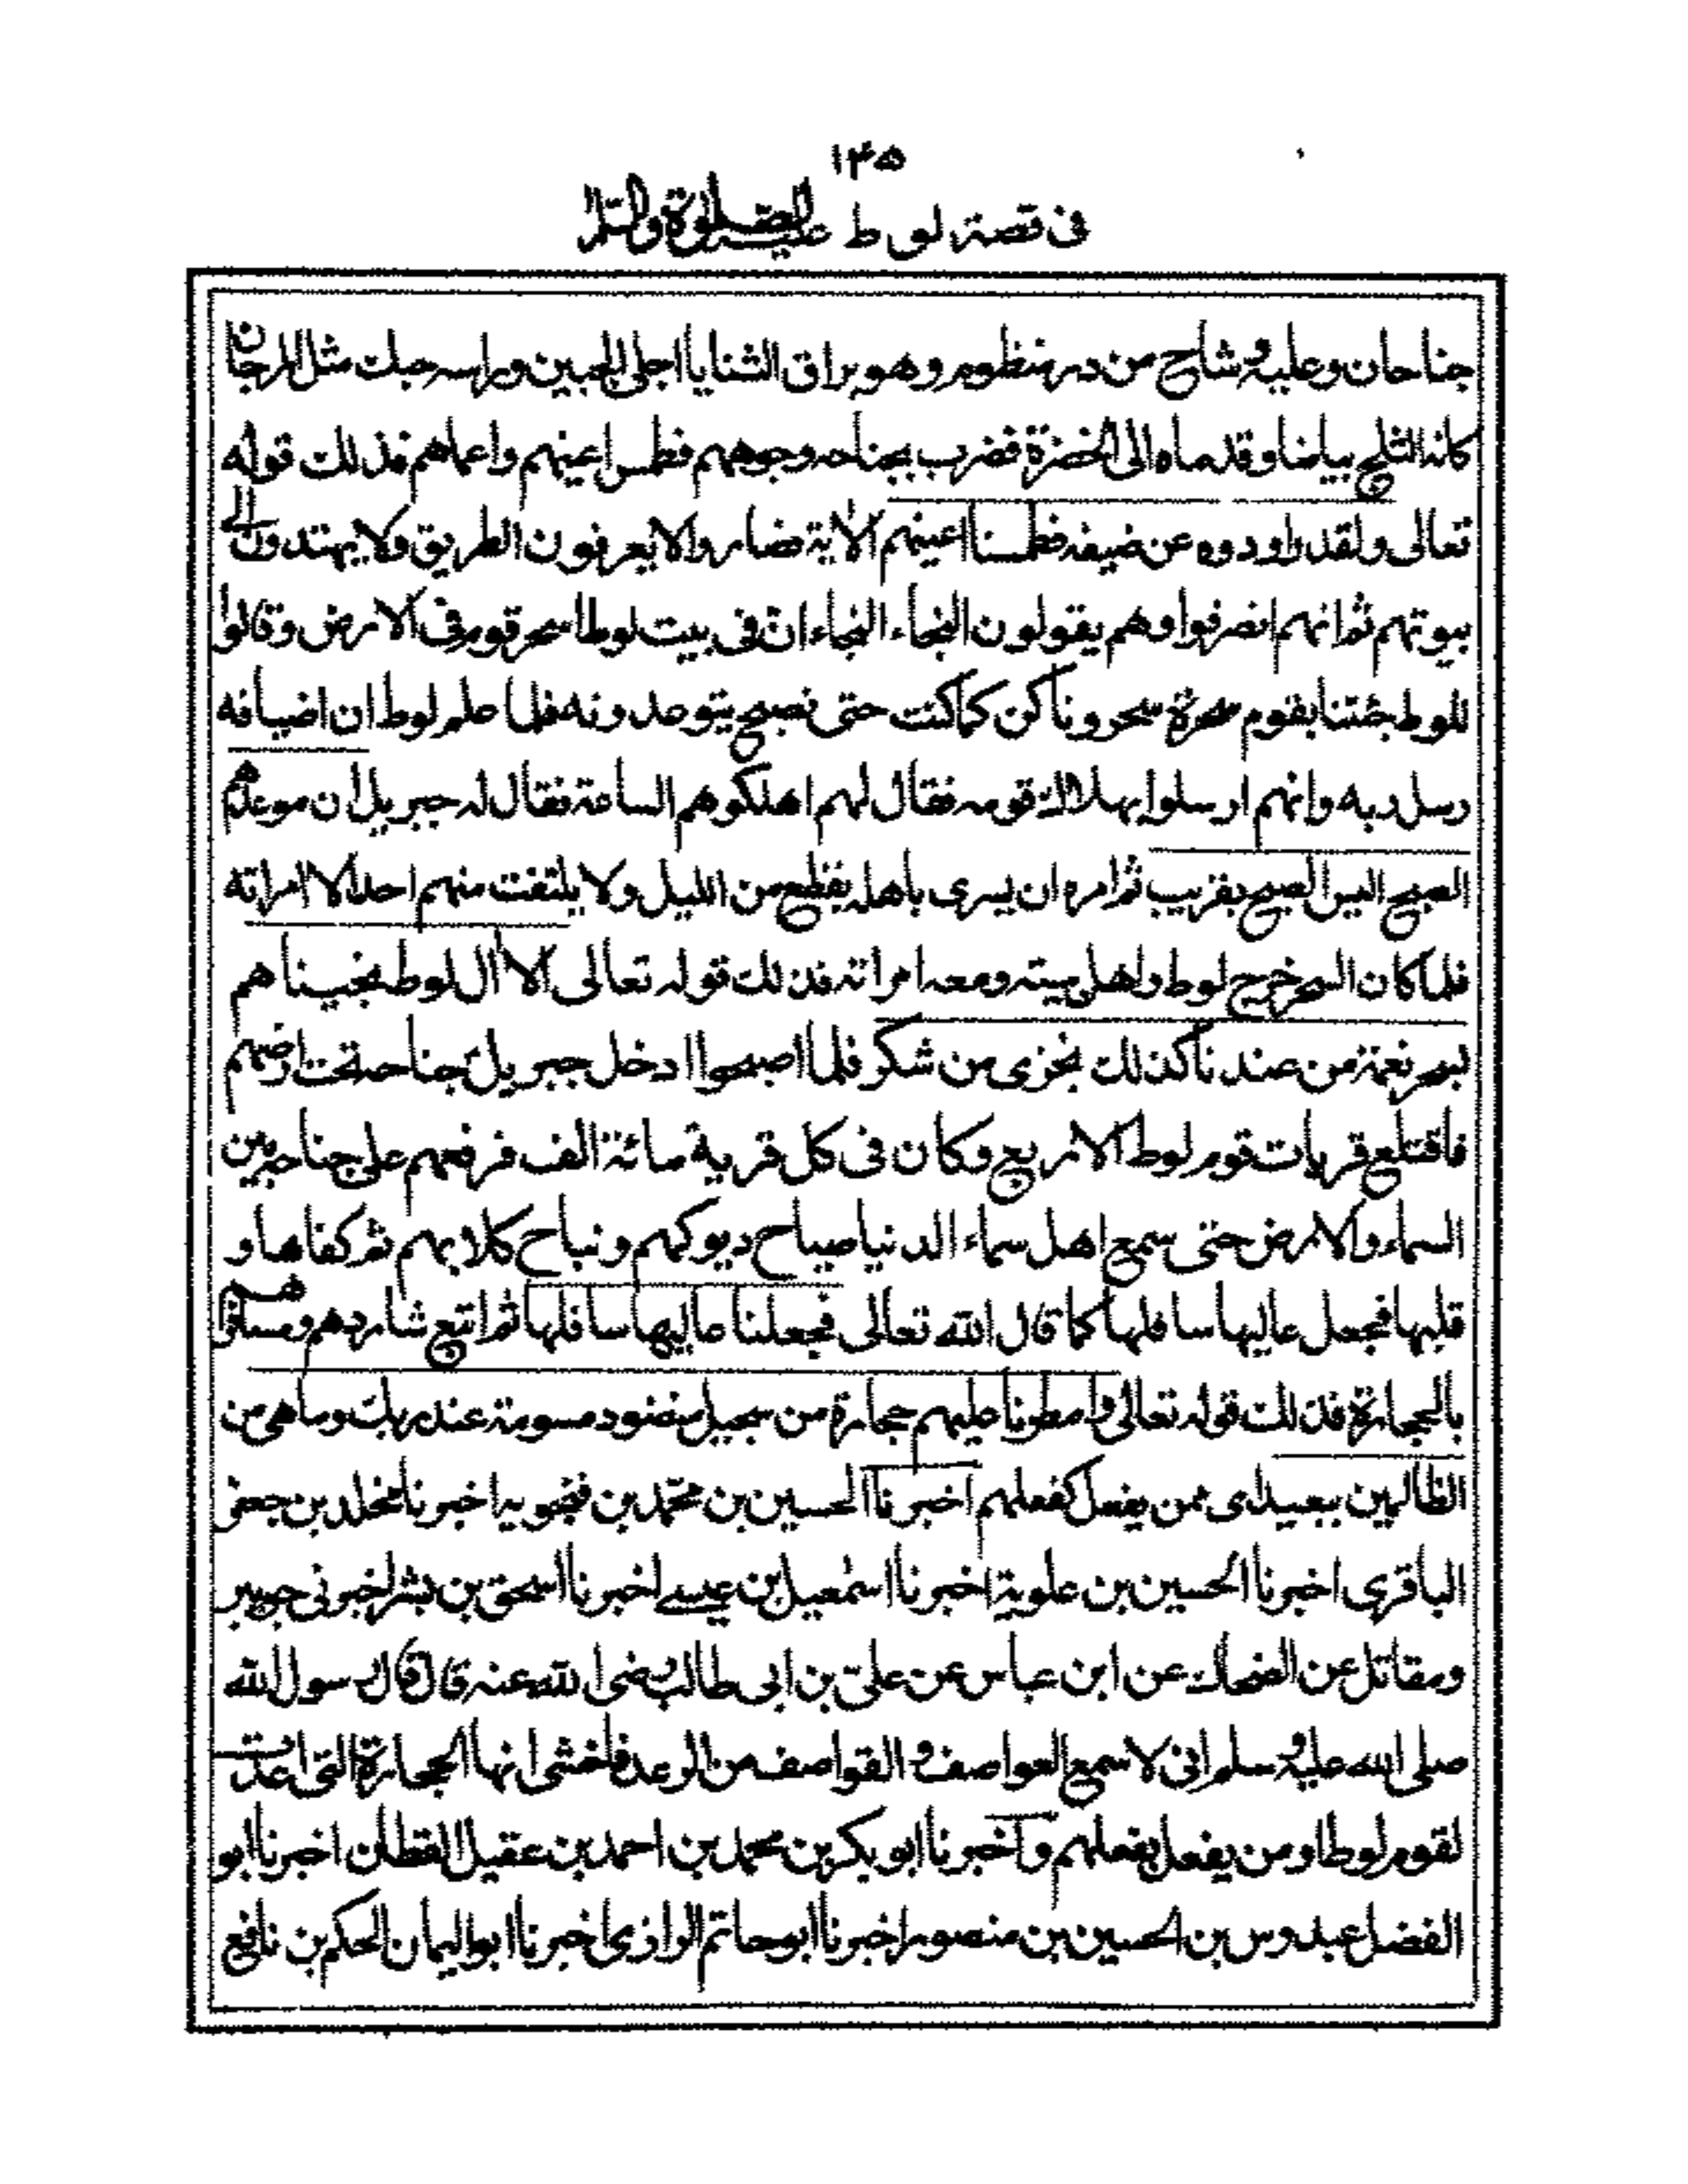 ١٤٥
فى قصة لوط عليه الصلوة والسلام
جناحان وعليه وشاح من در منظوم وهو براق الثنايا اجلى الجبين وراسه حبك مثل المرجان
كانه الثلج بياضا وقدماه الى الخضرة فضرب بجناحه وجوههم فطمس اعينهم واعماهم فذلك قوله
تعالى ولقد راودوه عن ضيفه فطمسنا اعينهم الاية فصاروا لا يعرفون الطريق ولا يهتدون الى
بيوتهم ثم انهم انصرفوا وهم يقولون النجاء النجاء ان فى بيت لوط اسحر قوم فى الارض وقالوا
للوط جئتنا بقوم سحرة سحرونا كن كما كنت حتى نصبح يتوعدونه فلما علم لوط ان اضيافه
رسل ربه وانهم ارسلوا بهلاك قومه فقال لهم اهلكوهم الساعة فقال له جبريل ان موعدهم
الصبح اليس الصبح بقريب ثم امره ان يسرى باهله بقطع من الليل ولا يلتفت منهم احد الا امراته
فلما كان السحر خرج لوط واهل بيته ومعه امراته فذلك قوله تعالى الا ال لوط نجيناهم
بسحر نعمة من عندنا كذلك نجزى من شكر فلما اصبحوا ادخل جبريل جناحه تحت ارضهم
فاقتلع قريات قوم لوط الاربع وكان فى كل قرية مائة الف فرفعهم على جناحه بين
السماء والارض حتى سمع اهل سماء الدنيا صياح ديوكهم ونباح كلابهم ثم كفاها و
قلبها فجعل عاليها سافلها كما قال الله تعالى فجعلنا عاليها سافلها ثم اتبع شاردهم ومسافرهم
بالحجارة فذلك قوله تعالى وامطرنا عليهم حجارة من سجيل منضود مسومة عند ربك وما هى من
الظالمين ببعيد اى ممن يفعل كفعلهم اخبرنا الحسين بن محمد بن فنجويه اخبرنا مخلد بن جعفر
الباقرى اخبرنا الحسين بن علوية اخبرنا اسمعيل بن عيسى اخبرنا اسحق بن بشر اخبرنى جويبر
ومقاتل عن الضحاك عن ابن عباس عن على بن ابى طالب رضى الله عنه قال قال رسول الله
صلى الله عليه وسلم انى لاسمع العواصف و القواصف من الرعد فاخشى انها الحجارة التى اعدت
لقوم لوط او من يفعل بفعلهم واخبرنا ابو بكر بن محمد بن احمد بن عقيل القطان اخبرنا ابو
الفضل عبدوس بن الحسين بن منصور اخبرنا ابو حاتم الرازى اخبرنا ابو اليمان الحكم بن نافع